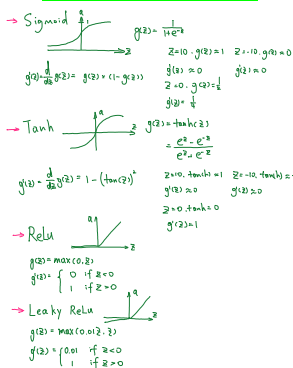 → Sigmoid
a
1
z
g(z) = 1/(1+e^-z)
g'(z) = d/dz g(z) = g(z) × (1 - g(z))
z=10. g(z) ≈ 1 z=-10. g(z) ≈ 0
g'(z) ≈ 0 g'(z) ≈ 0
z=0. g(z) = 1/2
g'(z) = 1/4
→ Tanh
a
z
g(z) = tanh(z)
= (e^z - e^-z)/
g'(z) = d/dz g(z) = 1 - (tan(z))^2
z=10. tanh(z) ≈ 1 z=-10. tanh(z) ≈
g'(z) ≈ 0 g'(z) ≈ 0
z=0. tanh = 0
g'(z) = 1
→ ReLu
a
z
g(z) = max(0, z)
g'(z) = { 0 if z<0
1 if z>0
→ Leaky ReLu
a
z
g(z) = max(0.01z, z)
g'(z) = { 0.01 if z<0
1 if z>0